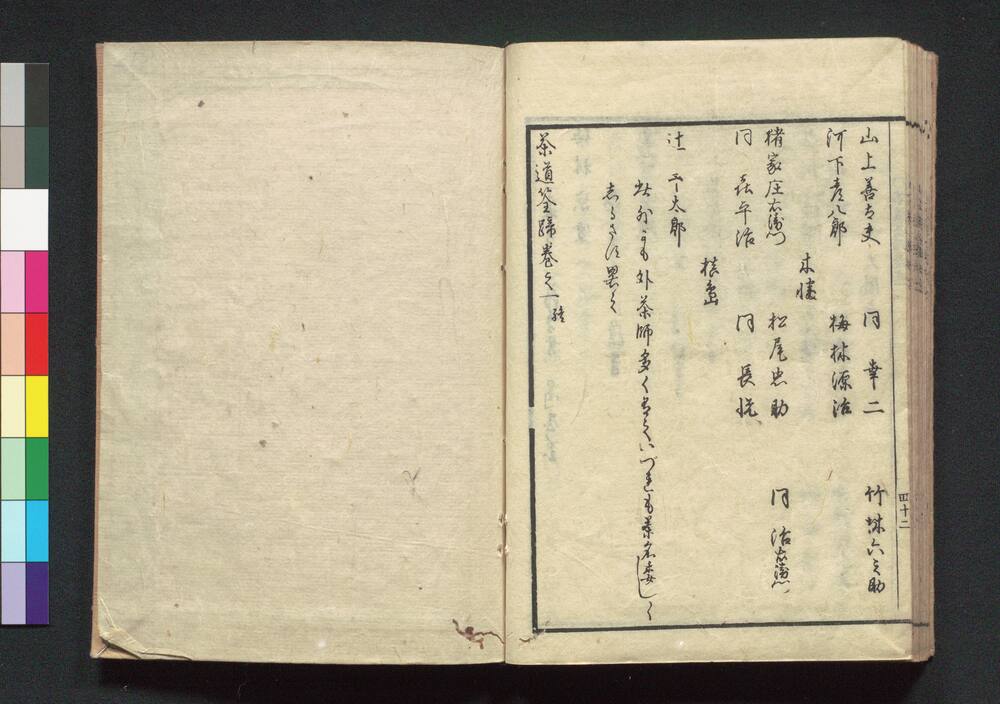 山上善太夫 同 幸二 竹林六之助
河下彦八郎 梅林源治
木幡
猪家庄右衛門 松尾忠助 同 治右衛門
同 喜平治 同 長悦
槙島
辻 五太郎
此外にも外茶師多く有之いづれも茶名
しるさず畧之
茶道筌蹄巻之一終
四十二